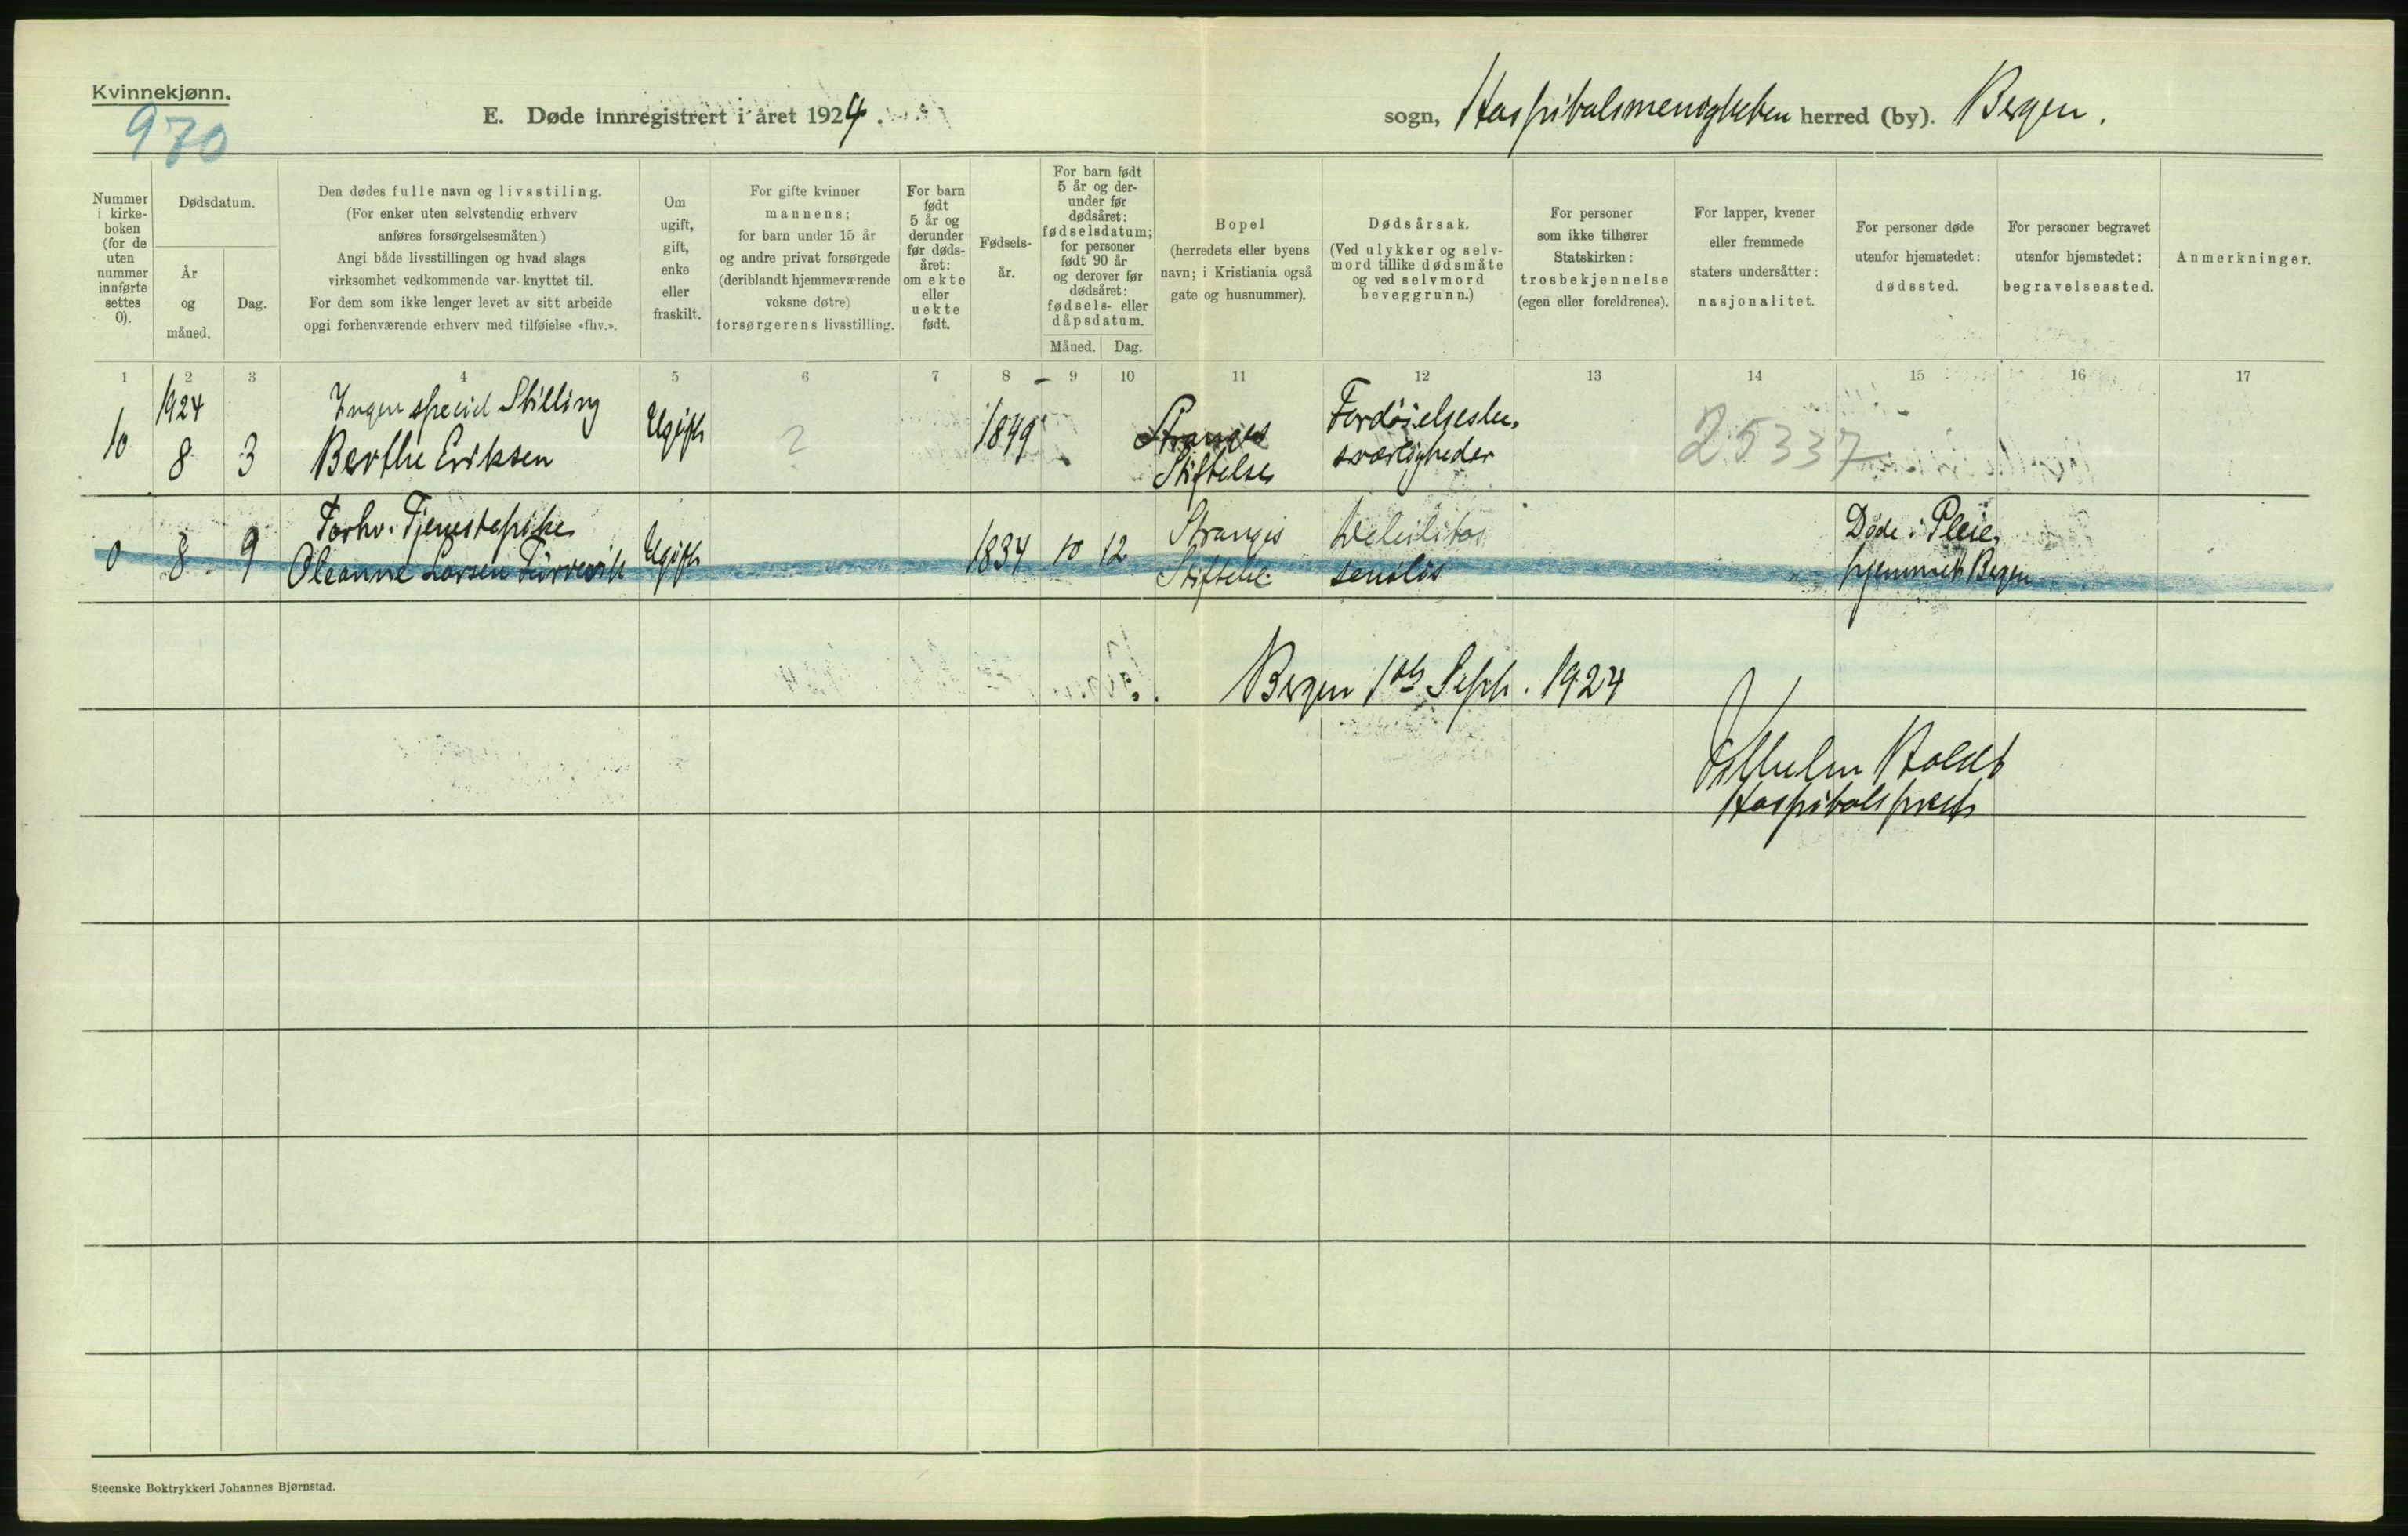 Kvinnekjønn.
970
E. Døde innregistrert i året 1924.
sogn, Hospitalsmenigheten herred (by). Bergen.
Nummer
i kirke-
boken
(for de
uten
nummer
innførte
settes
0).
Dødsdatum.
År
og
måned.
Dag.
Den dødes fulle navn og livsstiling.
(For enker uten selvstendig erhverv
anføres forsørgelsesmåten)
Angi både livsstillingen og hvad slags
virksomhet vedkommende var knyttet til.
For dem som ikke lenger levet av sitt arbeide
opgi forhenværende erhverv med tilføielse «fhv.».
Om
ugift,
gift,
enke
eller
fraskilt.
For gifte kvinner
mannens;
for barn under 15 år
og andre privat forsørgede
(deriblandt hjemmeværende
voksne døtre)
forsørgerens livsstilling.
For barn
født
5 år og
derunder
før døds-
året:
om ekte
eller
uekte
født.
Fødsels-
år.
For barn født
5 år og der-
under før
dødsåret:
fødselsdatum;
for personer
født 90 år
og derover før
dødsåret:
fødsels- eller
dåpsdatum.
Måned. Dag.
Bopel
(herredets eller byens
navn; i Kristiania også
gate og husnummer).
Dødsårsak.
(Ved ulykker og selv-
mord tillike dødsmåte
og ved selvmord
beveggrunn.)
For personer
som ikke tilhører
Statskirken:
trosbekjennelse
(egen eller foreldrenes).
For lapper, kvener
eller fremmede
staters undersåtter:
nasjonalitet.
For personer døde
utenfor hjemstedet:
dødssted.
For personer begravet
utenfor hjemstedet:
begravelsessted.
Anmerkninger.
1 2 3 4 5 6 7 8 9 10 11 12 13 14 15 16 17
1924 Ingen speciel Stilling
10 8 3 Berthe Eriksen Ugift ? 1849 Stranges Stiftelse Fordøielsesbe-
sværligheder 25337
Forhv. Tjenestepike
0 8 9 Oleanne Larsen Ugift 1834 10 12 Stranges Stiftelse Debilitas
senilis Døde i Pleie-
hjemmet Bergen
Bergen 1ste Sept. 1924
Vilhelm
Hospitalsprest
Steenske Boktrykkeri Johannes Bjørnstad.